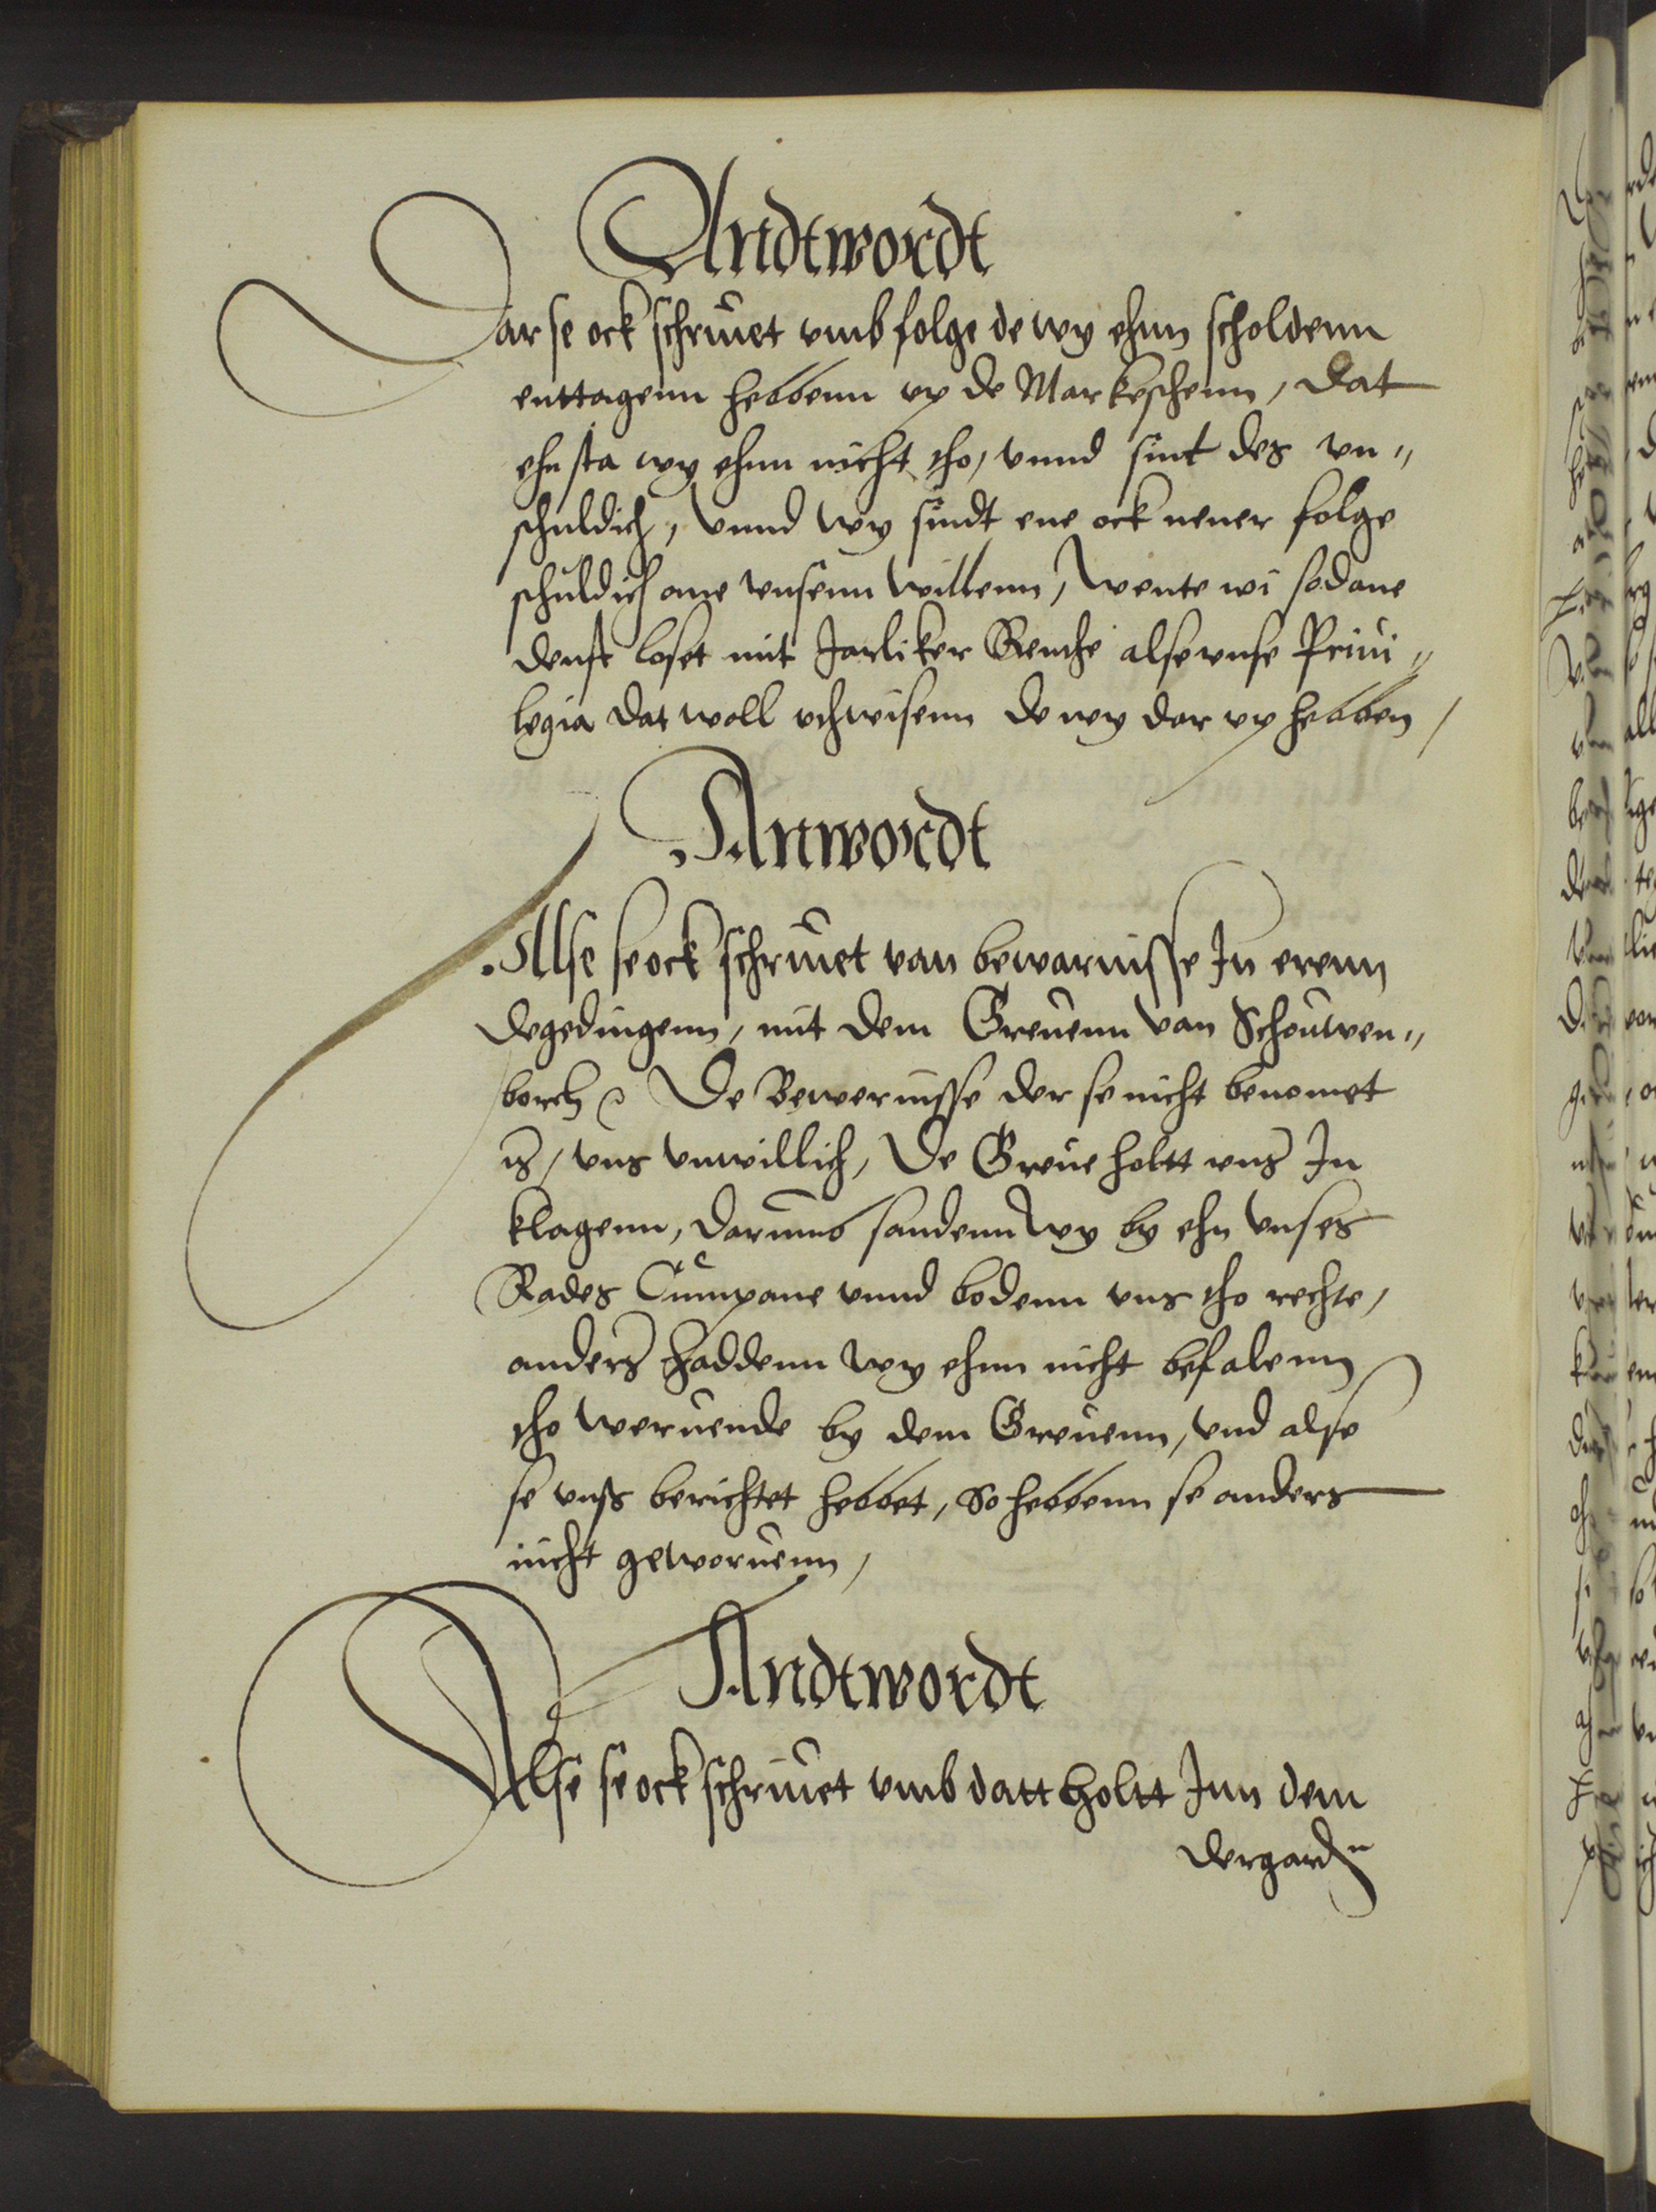 Andtwordt
Dar se ock schriuet vmb folge de wy ehnn scholdenn
enttagenn hebbenn vp de Markeschenn, dat
ehn sta wy ehnn nicht tho, vnnd sint des vn„
schuldich, vnnd wy sindt ene ock nener folge
schuldich ane vnsenn willenn, wente wi sodane
denst loset mit Jarliker Renthe alse vnse Priui„
legia dat woll vthwisenn de wy dar vp hebben,
Anwordt
Alse se ock schriuet van bewarnisse Jn erenn
degedingenn, mit dem Greuenn van Schouwen„
borch De Bewernisse der se nicht benomet
is, vns vnwillich, De Greue holtt vns Jn
klagenn, darumb sandenn wy by ehn vnses
Rades Cumpane vnnd bodenn vns tho rechte,
anders haddenn wy ehnn nicht befalenn
tho weruende by dem Greuenn, vnd alse
se vnß berichtet hebbet, So hebbenn se anders
nicht geworuenn,
Andtwordt
Alse se ock schriuet vmb datt holtt Jnn dem